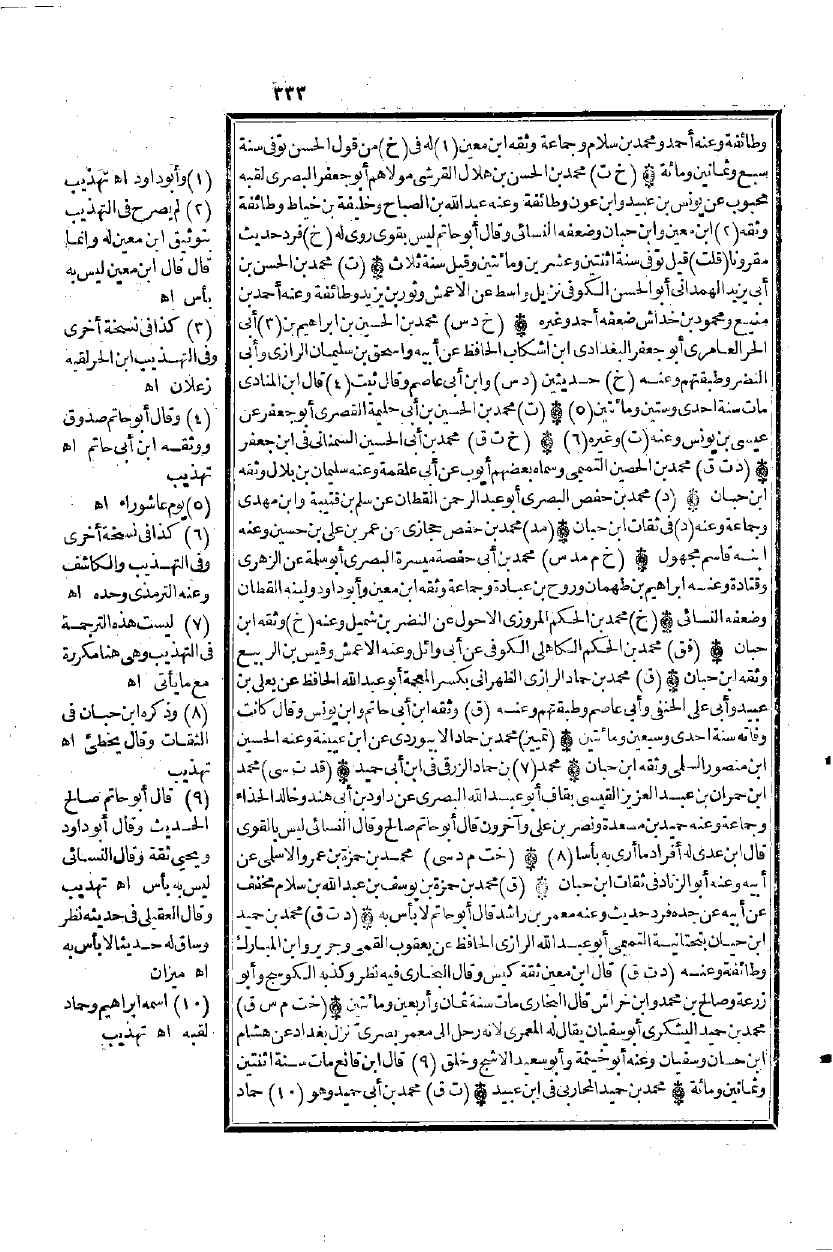 ٣٣٣
وطائفة وعنه أحمد ومحمد بن سلام وجماعة وثقه ابن معين (١) له فى (خ) من قول الحسن توفى سنة
سبع وثمانين ومائة (خ ت) محمد بن الحسن بن هلال القرشى مولاهم أبو جعفر البصرى لقبه
محبوب عن يونس بن عبيد وابن عون وطائفة وعنه عبد الله بن الصباح وخليفة بن خياط وطائفة
وثقه (٢) ابن معين وابن حبان وضعفه النسائى وقال أبو حاتم ليس بقوى روى له (خ) فرد حديث
مقرونا (قلت) قيل توفى سنة اثنتين وعشرين ومائتين وقيل سنة ثلاث (ت) محمد بن الحسن بن
أبى يزيد الهمدانى أبو الحسن الكوفى نزيل واسط عن الاعمش وثور بن يزيد وطائفة وعنه أحمد بن
منيع ومحمود بن خداش ضعفه أحمد وغيره (خ د س) محمد بن الحسين بن ابراهيم بن (٣) أبى
الحر العامرى أبو جعفر البغدادى ابن اشكاب الحافظ عن أبيه واسحق بن سليمان الرازى وأبى
النضر وطبقتهم وعنه (خ) حديثين (د س) وابن أبى عاصم وقال ثبت (٤) قال ابن المنادى
مات سنة احدى وستين ومائتين (٥) (ت) محمد بن الحسين بن أبى حليمة القصرى أبو جعفر عن
عيسى بن يونس وعنه (ت) وغيره (٦) (خ ت ق) محمد بن أبى الحسين السمنانى فى ابن جعفر
(د ت ق) محمد بن الحصين التميمى وسماه بعضهم أيوب عن أبى علقمة وعنه سليمان بن بلال وثقه
ابن حبان (د) محمد بن حفص البصرى أبو عبد الرحمن القطان عن سلم بن قتيبة وابن مهدى
وجماعة وعنه (د) فى ثقات ابن حبان (مد) محمد بن حفص حجازى عن عمر بن على بن حسين وعنه
ابنه قاسم مجهول (خ م مد س) محمد بن أبى حفصة ميسرة البصرى أبو سلمة عن الزهرى
وقتادة وعنه ابراهيم بن طهمان وروح بن عبادة وجماعة وثقه ابن معين وأبو داود ولينه القطان
وضعفه النسائى (خ) محمد بن الحكم المروزى الاحول عن النضر بن شميل وعنه (خ) وثقه ابن
حبان (فق) محمد بن الحكم الكاهلى الكوفى عن أبى وائل وعنه الاعمش وقيس بن الربيع
وثقه ابن حبان (ق) محمد بن حماد الرازى الطهرانى بكسر المعجمة أبو عبد الله الحافظ عن يعلى بن
عبيد وأبى على الحنفى وأبى عاصم وطبقتهم وعنه (ق) وثقه ابن أبى حاتم وابن يونس وقال كانت
وفاته سنة احدى وسبعين ومائتين (تمييز) محمد بن حماد الابيوردى عن ابن عيينة وعنه الحسين
ابن منصور السلمى وثقه ابن حبان محمد (٧) بن حماد الزرقى فى ابن أبى حميد (قد ت سى) محمد
ابن حمران بن عبد العزيز القيسى بقاف أبو عبد الله البصرى عن داود بن أبى هند وخالد الحذاء
وجماعة وعنه حميد بن مسعدة ونصر بن على وآخرون قال أبو حاتم صالح وقال النسائى ليس بالقوى
قال ابن عدى له أفراد ما أرى به بأسا (٨) (خت م د سى) محمد بن حمزة بن عمرو الاسلمى عن
أبيه وعنه أبو الزناد فى ثقات ابن حبان (ق) محمد بن حمزة بن يوسف بن عبد الله بن سلام مخفف
عن أبيه عن جده فرد حديث وعنه معمر بن راشد قال أبو حاتم لا بأس به (د ت ق) محمد بن حميد
ابن حيان بتحتانية التميمى أبو عبد الله الرازى الحافظ عن يعقوب القمى وجرير وابن المبارك
وطائفة وعنه (د ت ق) قال ابن معين ثقة كيس وقال البخارى فيه نظر وكذبه الكوسج وأبو
زرعة وصالح بن محمد وابن خراش قال البخارى مات سنة ثمان وأربعين ومائتين (خت م س ق)
محمد بن حميد اليشكرى أبو سفيان يقال له المعمرى لانه رحل الى معمر بصرى نزل بغداد عن هشام
ابن حسان وسفيان وعنه أبو خيثمة وأبو سعيد الاشج وخلق (٩) قال ابن قانع مات سنة اثنتين
وثمانين ومائة محمد بن حميد المحاربى فى ابن عبيد (ت ق) محمد بن أبى حميد وهو (١٠) حماد
(١) وأبو داود اه تهذيب
(٢) لم يصرح فى التهذيب
بتوثيق ابن معين له وانما
قال قال ابن معين ليس به
بأس اه
(٣) كذا فى نسخة أخرى
وفى التهذيب ابن الحر لقبه
زعلان اه
(٤) وقال أبو حاتم صدوق
ووثقه ابن أبى حاتم اه
تهذيب
(٥) يوم عاشوراء اه
(٦) كذا فى نسخة أخرى
وفى التهذيب والكاشف
وعنه الترمذى وحده اه
(٧) ليست هذه الترجمة
فى التهذيب وهى هنا مكررة
مع ما يأتى اه
(٨) وذكره ابن حبان فى
الثقات وقال يخطئ اه
تهذيب
(٩) قال أبو حاتم صالح
الحديث وقال أبو داود
ويحيى ثقة وقال النسائى
ليس به بأس اه تهذيب
وقال العقيلى فى حديثه نظر
وساق له حديثا لا بأس به
اه ميزان
(١٠) اسمه ابراهيم وحماد
لقبه اه تهذيب